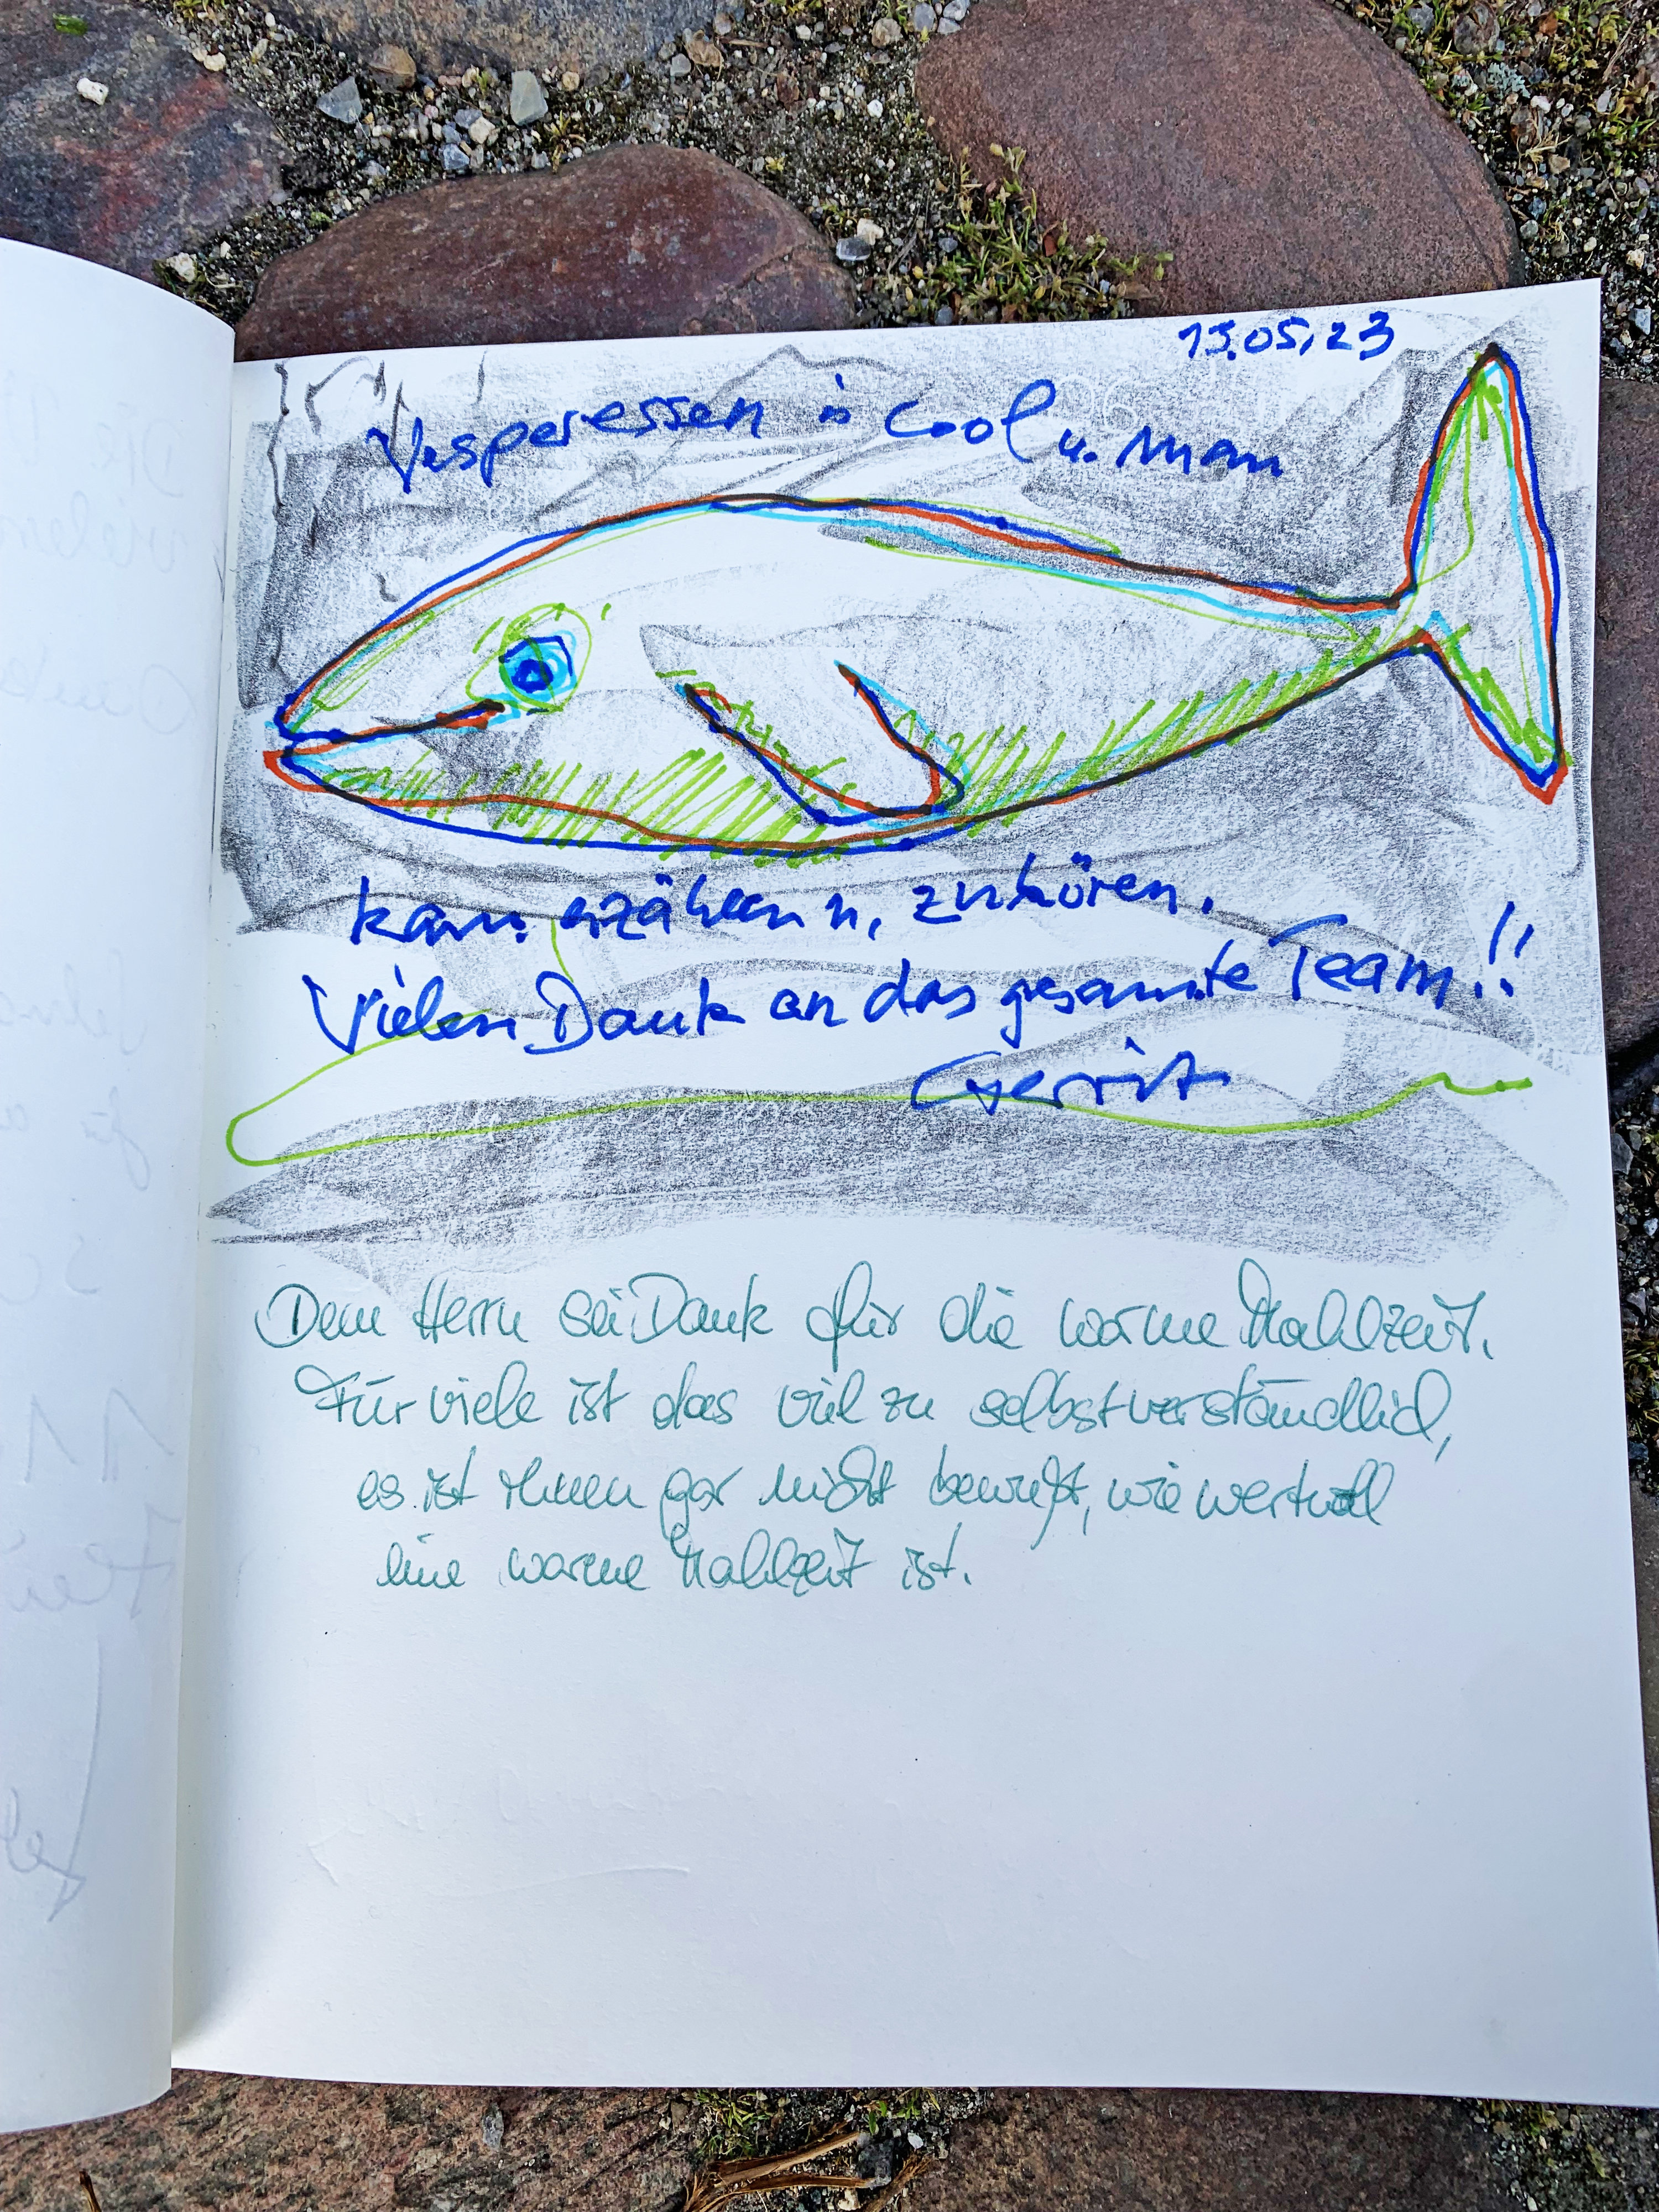 13.05.23
Vesperessen is Cool u. man
kann erzählen u. zuhören.
Vielen Dank an das gesamte Team!!
Gerrit
Dem Herrn sei Dank für die warme Mahlzeit.
Für viele ist das viel zu selbstverständlich,
es ist ihnen gar nicht bewußt, wie wertvoll
eine warme Mahlzeit ist.